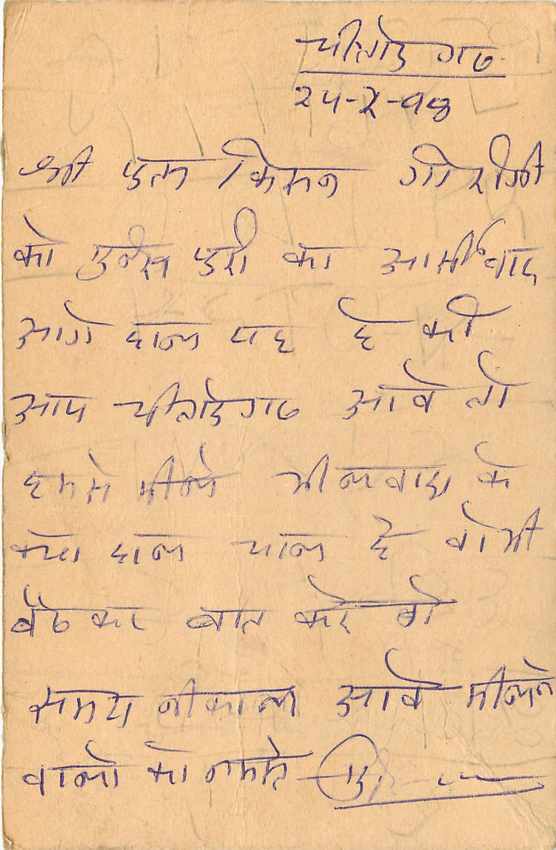 चीतोडगढ
२५-२-९८
श्री किसन जी
को पुरी का आर्सीवाद
आगे हाल यह हे की
आप चीतोडगढ आवे तो
हमसे मीले भीलवाडा के
क्या हाल चाल हे वो भी
बेठ कर बात करे गे
समय नीकाल आवे मीलने
वालो को नमस्ते